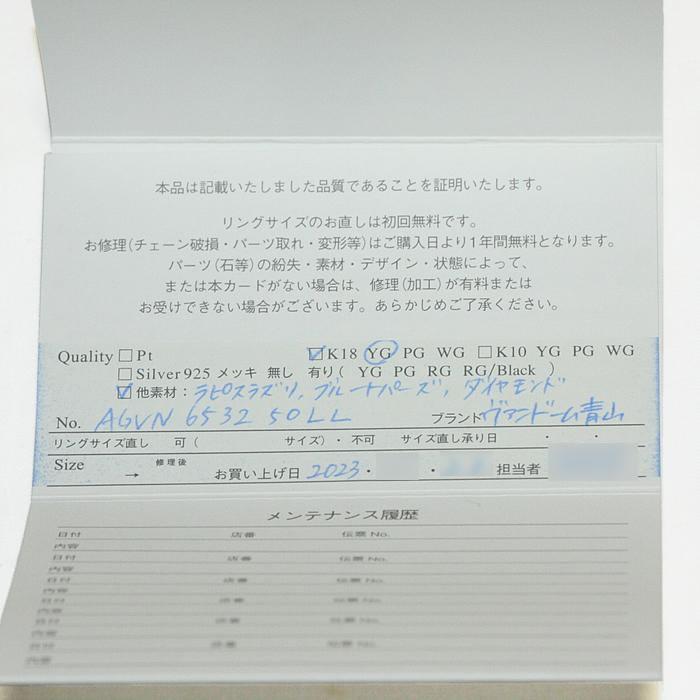 本品は記載いたしました品質であることを証明いたします。
リングサイズのお直しは初回無料です。
お修理(チェーン破損・パーツ取れ・変形等)はご購入日より1年間無料となります。
パーツ(石等)の紛失・素材・デザイン・状態によって、
または本カードがない場合は、修理(加工)が有料または
お受けできない場合がございます。あらかじめご了承ください。
Quality □Pt ☑K18 YG PG WG □K10 YG PG WG
□Silver925 メッキ 無し 有り( YG PG RG RG/Black )
☑他素材:ラピスラズリ, ブルートパーズ, ダイヤモンド
No. AGVN 6532 50LL ブランド ヴァンドーム青山
リングサイズ直し 可( サイズ)・不可 サイズ直し承り日 ・ ・
Size → 修理後 お買い上げ日 2023・ ・ 担当者
メンテナンス履歴
日付 店番 伝票No.
内容
日付 店番 伝票No.
内容
日付 店番 伝票No.
内容
日付 店番 伝票No.
内容
日付 店番 伝票No.
内容
日付 店番 伝票No.
内容